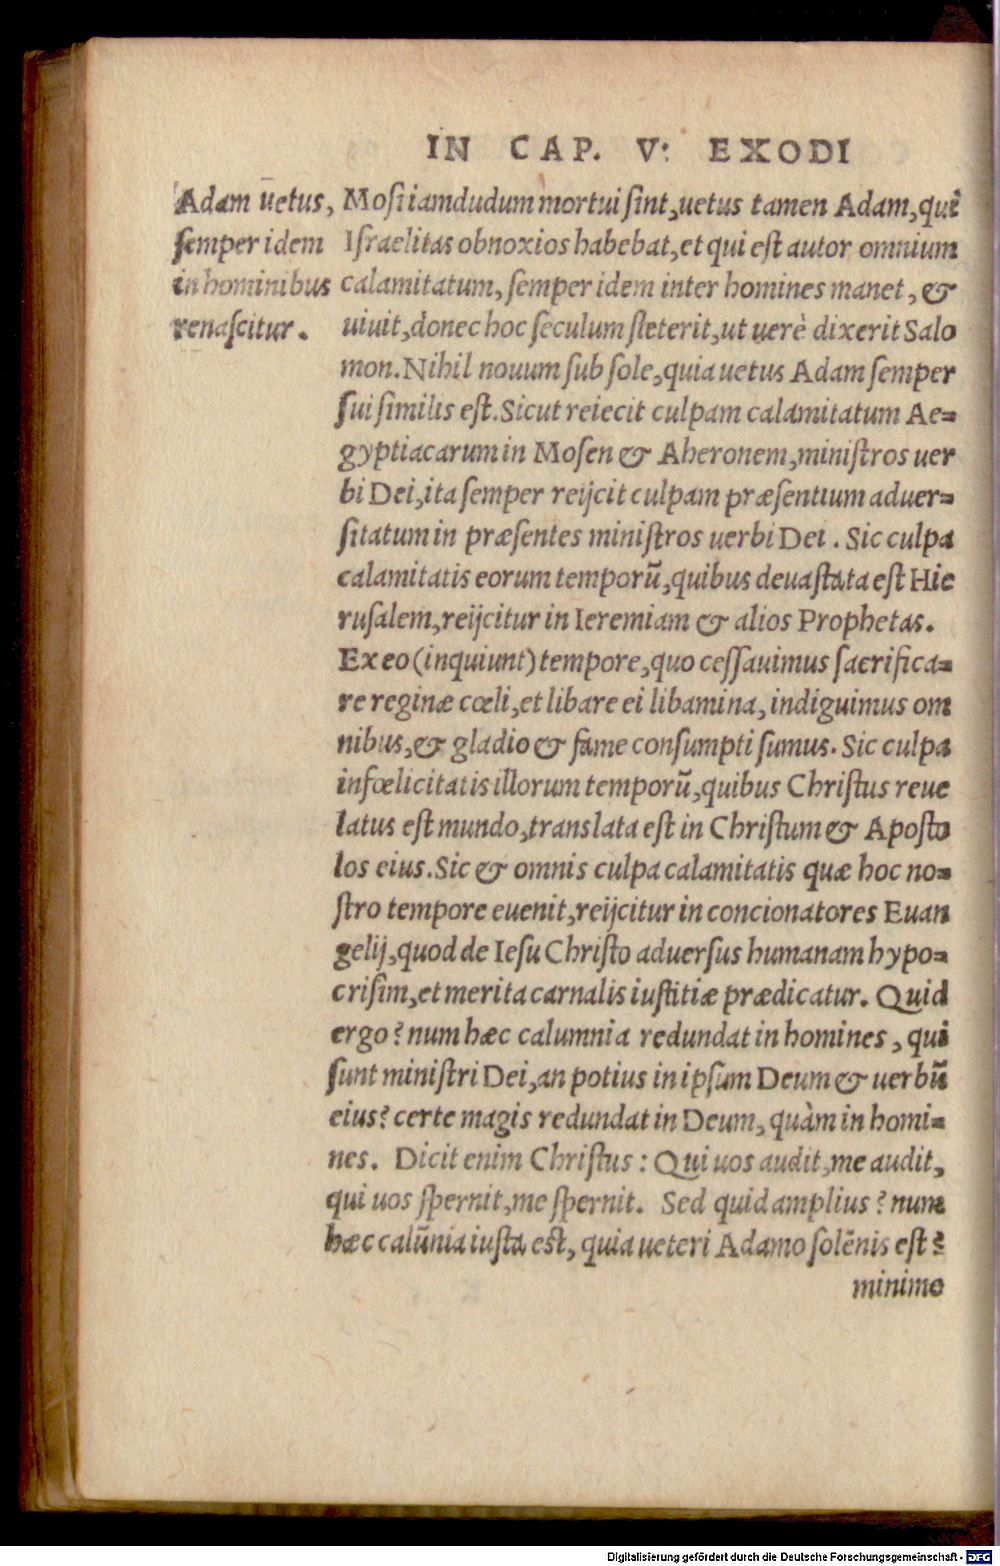 IN CAP. V: EXODI
Adam uetus,
semper idem
in hominibus
renascitur.
Mosi iamdudum mortui sint, uetus tamen Adam, qui
Israelitas obnoxios habebat, et qui est autor omnium
calamitatum, semper idem inter homines manet, &
uiuit, donec hoc seculum steterit, ut uerè dixerit Salo
mon. Nihil nouum sub sole, quia uetus Adam semper
sui similis est. Sicut reiecit culpam calamitatum Ae=
gyptiacarum in Mosen & Aheronem, ministros uer
bi Dei, ita semper reijcit culpam præsentium aduer=
sitatum in præsentes ministros uerbi Dei. Sic culpa
calamitatis eorum temporũ, quibus deuastata est Hie
rusalem, reijcitur in Ieremiam & alios Prophetas.
Ex eo (inquiunt) tempore, quo cessauimus sacrifica=
re reginæ cœli, et libare ei libamina, indiguimus om
nibus, & gladio & fame consumpti sumus. Sic culpa
infœlicitatis illorum temporũ, quibus Christus reue
latus est mundo, translata est in Christum & Aposto
los eius. Sic & omnis culpa calamitatis quæ hoc no=
stro tempore euenit, reijcitur in concionatores Euan
gelij, quod de Iesu Christo aduersus humanam hypo=
crisim, et merita carnalis iustitiæ prædicatur. Quid
ergo? num hæc calumnia redundat in homines, qui
sunt ministri Dei, an potius in ipsum Deum & uerbũ
eius? certe magis redundat in Deum, quàm in homi=
nes. Dicit enim Christus: Qui uos audit, me audit,
qui uos spernit, me spernit. Sed quid amplius? num
hæc calũnia iusta est, quia ueteri Adamo solẽnis est?
minime
Digitalisierung gefördert durch die Deutsche Forschungsgemeinschaft - DFG